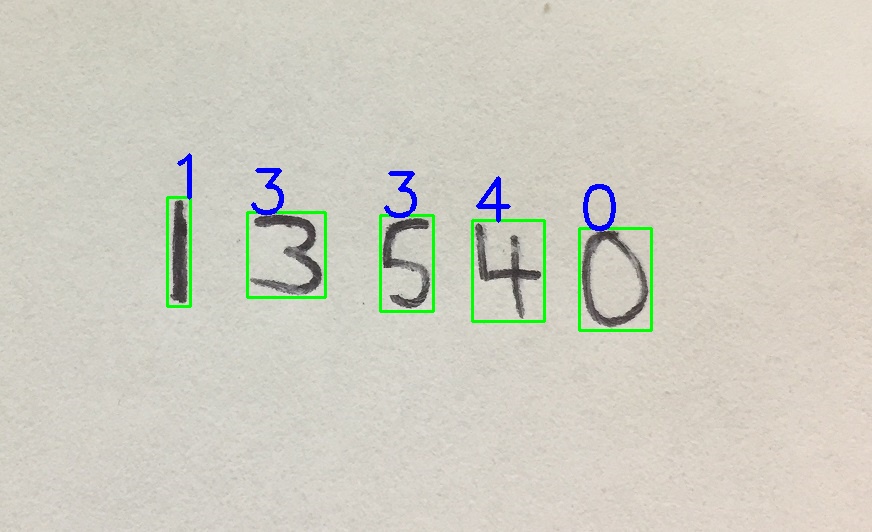 1 3 3 4 0
1 3 5 4 0